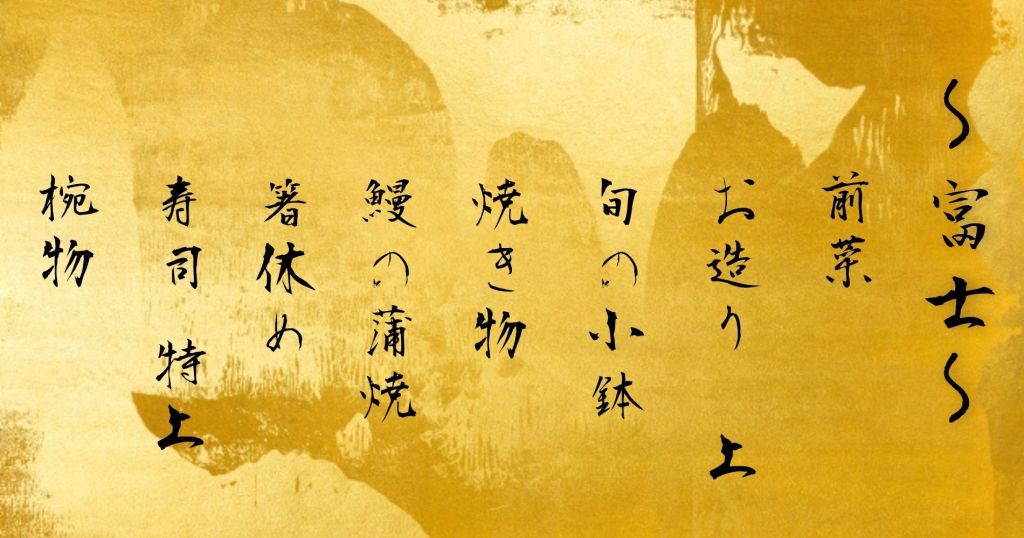 〜富士〜
前菜
お造り 上
旬の小鉢
焼き物
鰻の蒲焼
箸休め
寿司 特上
椀物